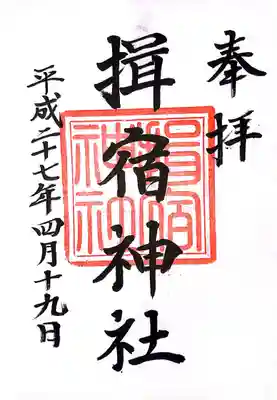 奉拝
揖宿神社
平成二十七年四月十九日